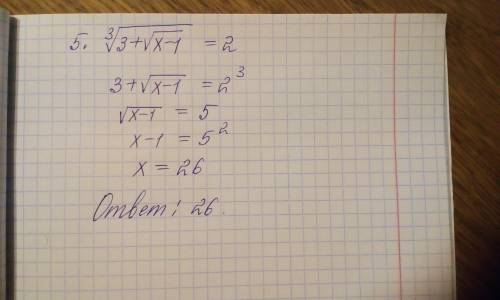 5. ∛(3+√(x-1)) = 2
3+√(x-1) = 2³
√(x-1) = 5
x-1 = 5²
x = 26
Ответ: 26.